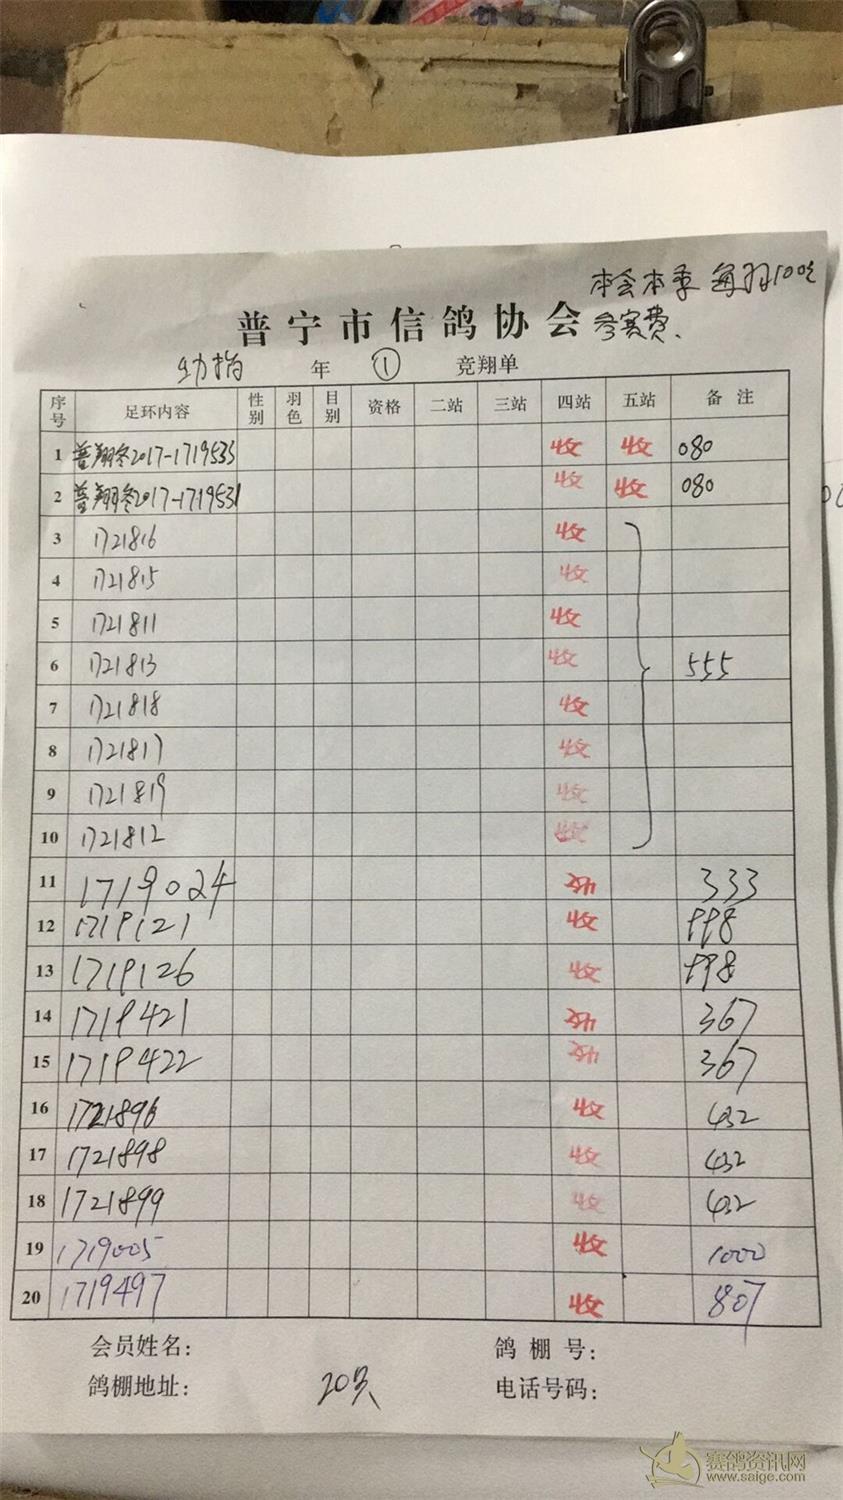 本会本季每羽100元
普宁市信鸽协会 参赛费、
幼指 年 ① 竞翔单
序号 足环内容 性别 羽色 目别 资格 二站 三站 四站 五站 备注
1 普翔冬2017-1719535 收 收 080
2 普翔冬2017-1719531 收 收 080
3 1721816 收
4 1721815 收
5 1721811 收
6 1721813 收 555
7 1721818 收
8 1721817 收
9 1721819 收
10 1721812 收
11 1719024 收 333
12 1719121 收 998
13 1719126 收 998
14 1719421 收 367
15 1719422 收 367
16 1721896 收 432
17 1721898 收 432
18 1721899 收 432
19 1719005 收 1000
20 1719497 收 807
会员姓名： 鸽棚号：
鸽棚地址： 20只 电话号码：
赛鸽资讯网
www.saige.com